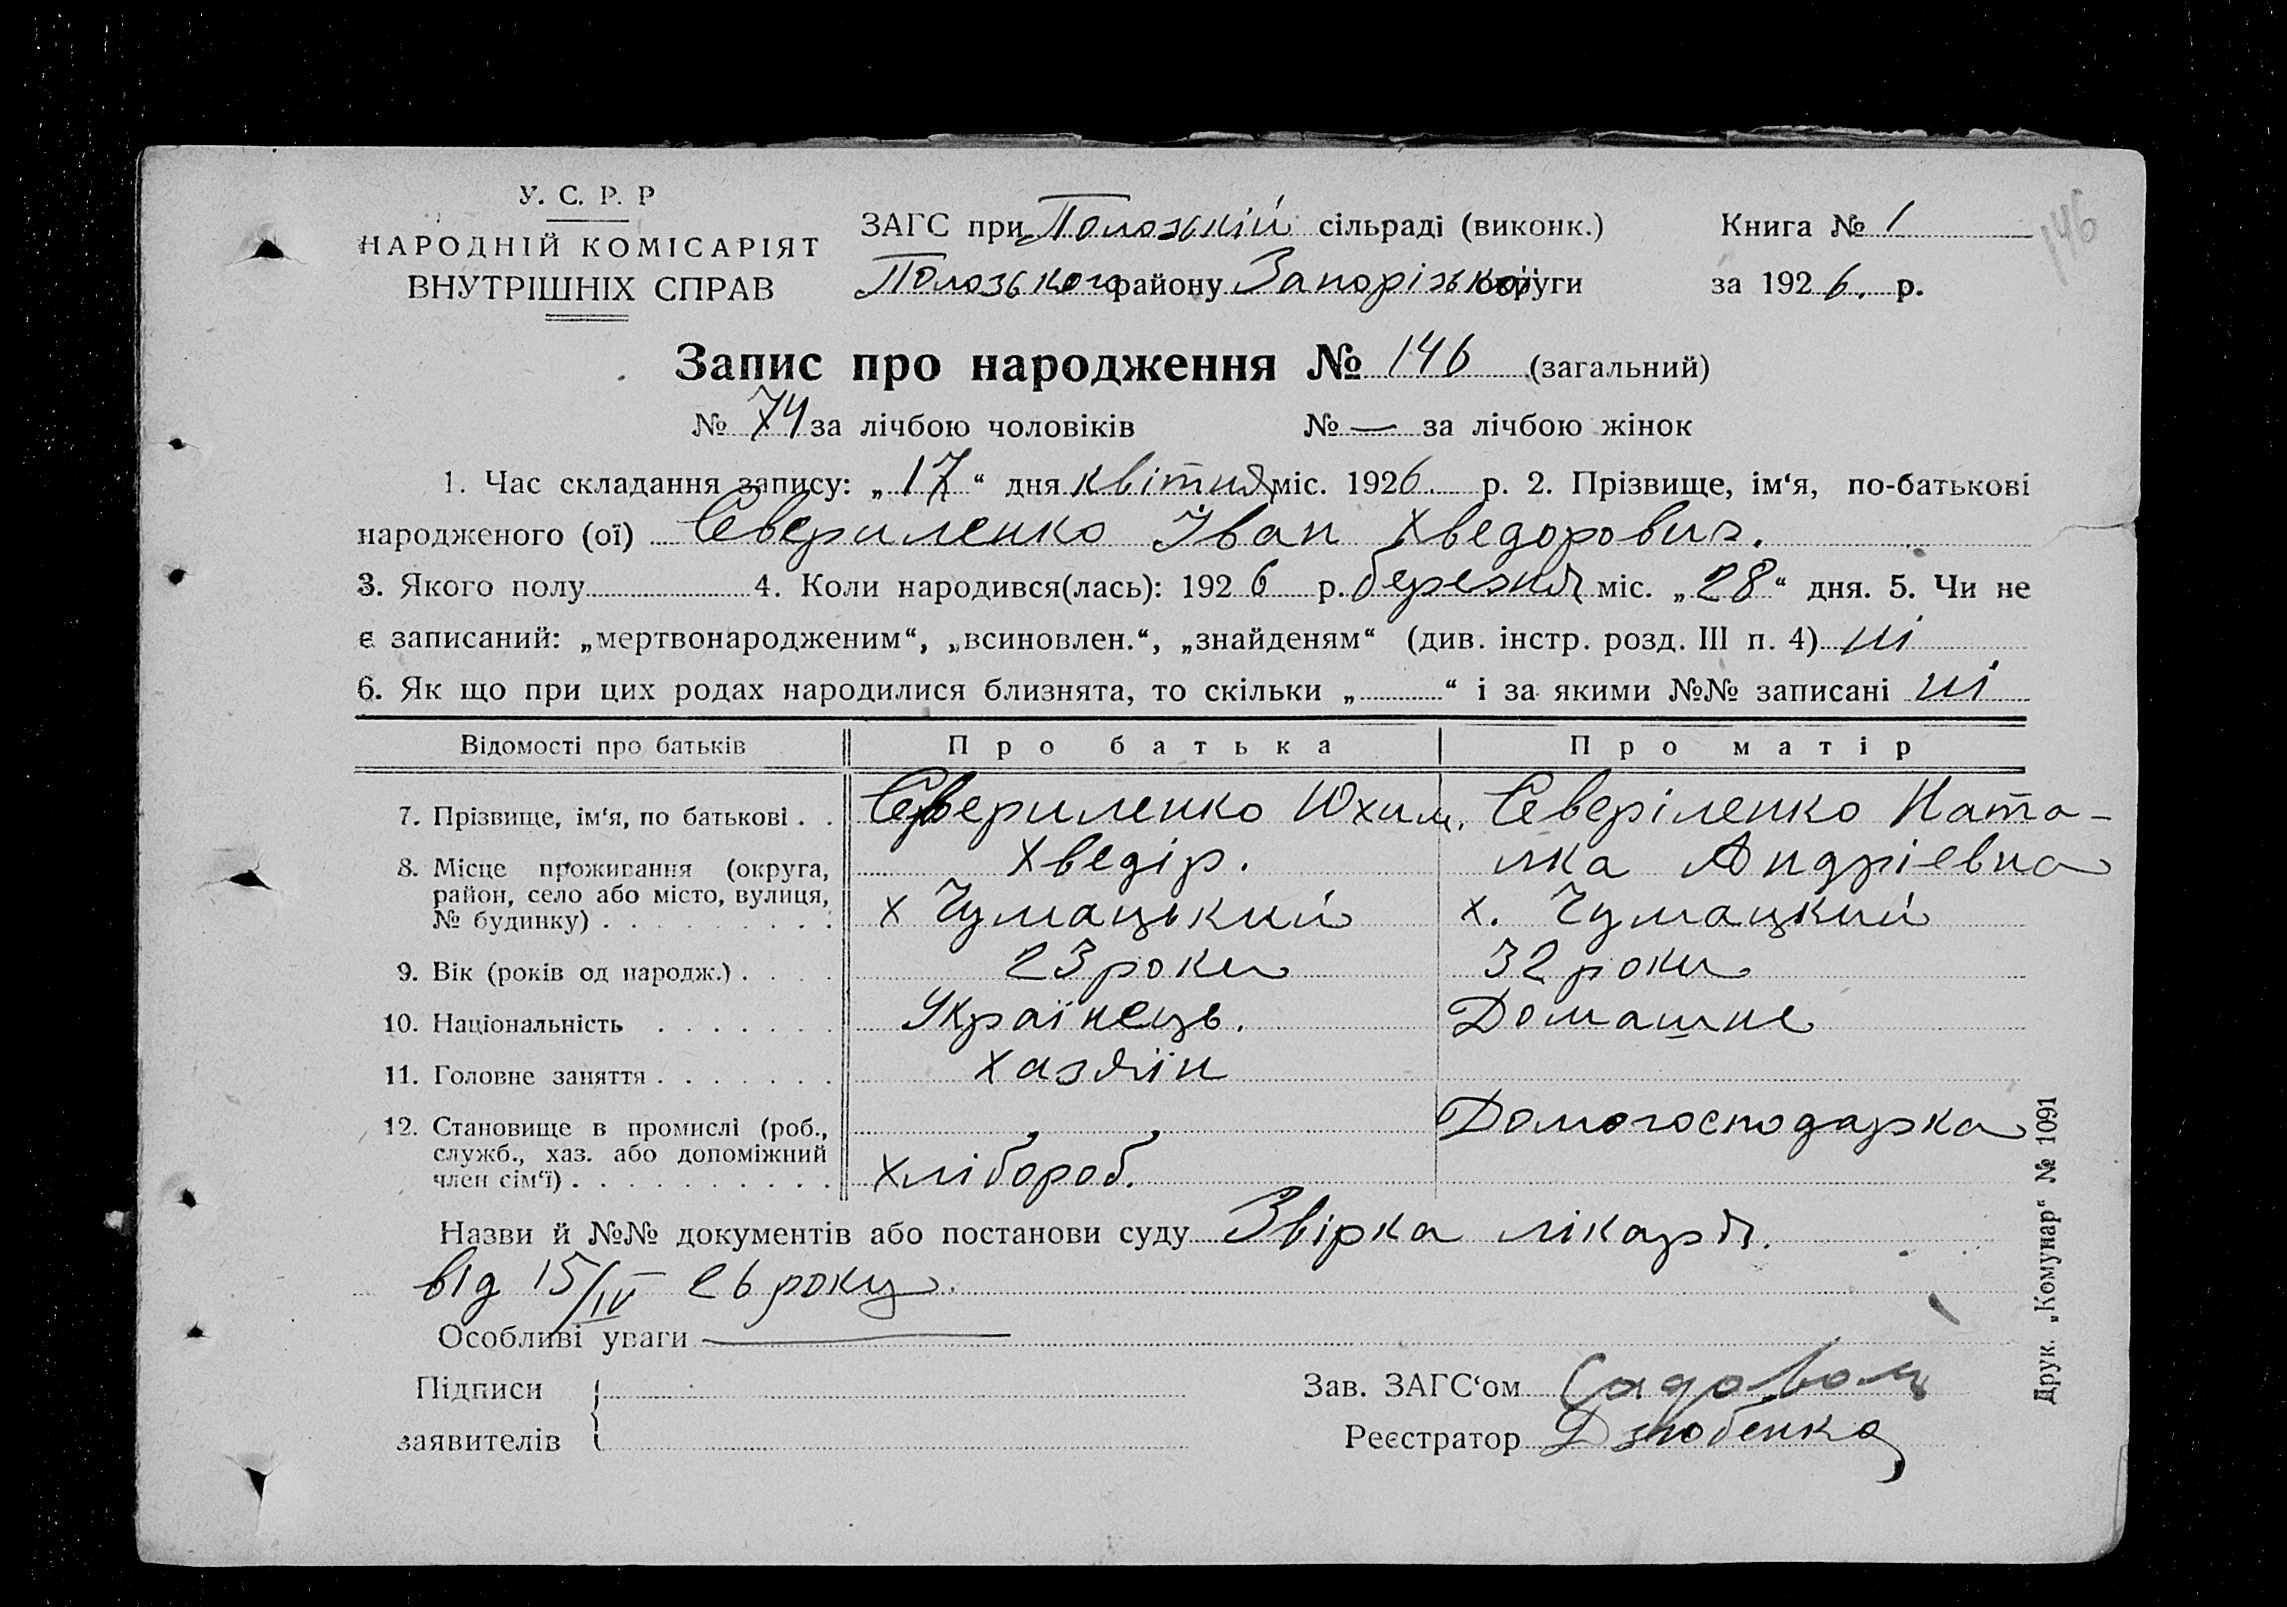 У. С. Р. Р
НАРОДНІЙ КОМІСАРІЯТ
ВНУТРІШНІХ СПРАВ
ЗАГС при Полозькій сільраді (виконк.)
Полозького району Запорізької округи
Книга № 1
за 1926. р.
146
Запис про народження № 146 (загальний)
№ 74 за лічбою чоловіків № — за лічбою жінок
1. Час складання запису: „17“ дня квітня міс. 1926 р. 2. Прізвище, ім‘я, по-батькові
народженого (ої) Севериленко Іван Хведорович.
3. Якого полу 4. Коли народився(лась): 1926 р. березня міс. „28“ дня. 5. Чи не
є записаний: „мертвонародженим“, „всиновлен.“, „знайденям“ (див. інстр. розд. III п. 4) ні
6. Як що при цих родах народилися близнята, то скільки „ “ і за якими №№ записані ні
Відомості про батьків Про батька Про матір
7. Прізвище, ім‘я, по батькові . . Севериленко Юхим. Хведір. Северіленко Ната-
лка Андріевна
8. Місце проживання (округа,
район, село або місто, вулиця,
№ будинку) . . . . . . . . . х Чумацький х. Чумацкий
9. Вік (років од народж.) . . . . 23 роки 32 роки
10. Національність . . . . . . . Українець. Домашне
11. Головне заняття . . . . . . . хазяїн
12. Становище в промислі (роб.,
служб., хаз. або допоміжний
член сім‘ї) . . . . . . . . . . хлібороб. Домогосподарка
Назви й №№ документів або постанови суду Звірка лікаря.
від 15/IV 26 року.
Особливі уваги —
Підписи
заявителів
Зав. ЗАГС‘ом
Реєстратор Дзюбенко
Друк. „Комунар“ № 1091